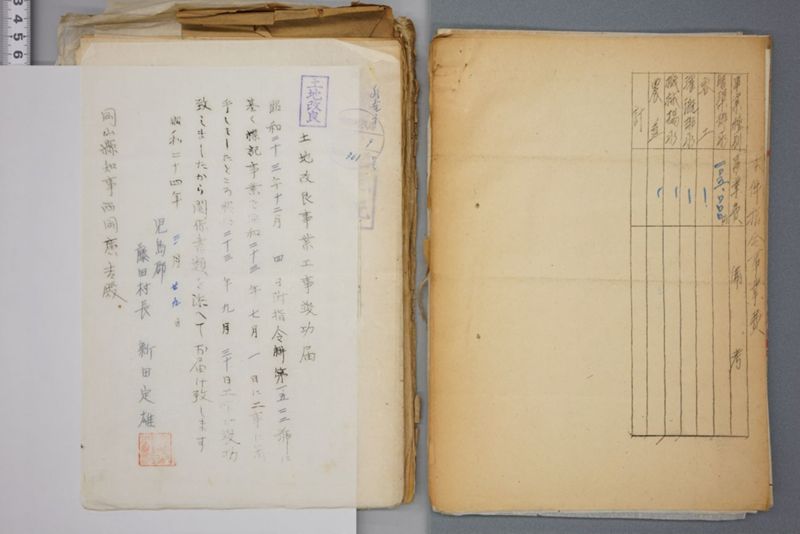 土地改良
土地改良事業工事竣功届
昭和二十三年十二月 四日附指令耕第一五二二号に
基く標記事業を昭和二十三年七月一日に工事に着
手しましたところ昭和二十三年九月三十日工事が竣功
致しましたから関係書類を添へてお届け致します
昭和二十四年 三月 廿九日
児島郡
藤田村長 新田定雄
岡山縣知事西岡広吉殿
本件指令事業費
事業種別 事業費 備考
暗渠排水
客土
灌漑排水
機械揚水
農道
計